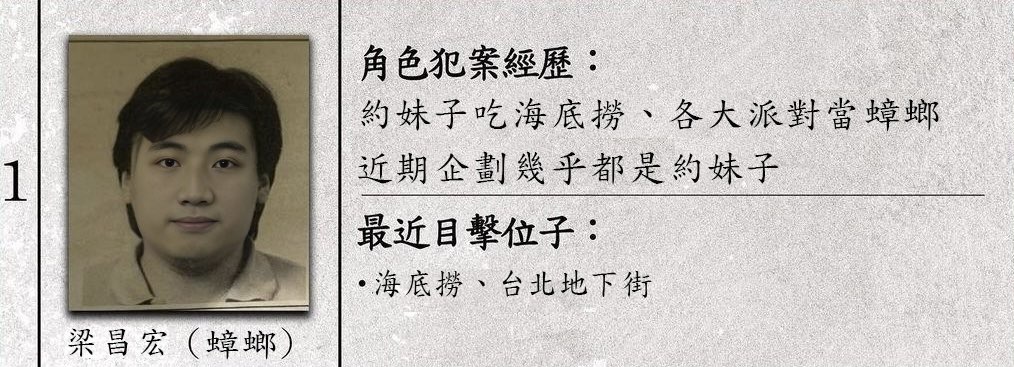 1
梁昌宏（蟑螂）
角色犯案經歷：
約妹子吃海底撈、各大派對當蟑螂
近期企劃幾乎都是約妹子
最近目擊位子：
•海底撈、台北地下街